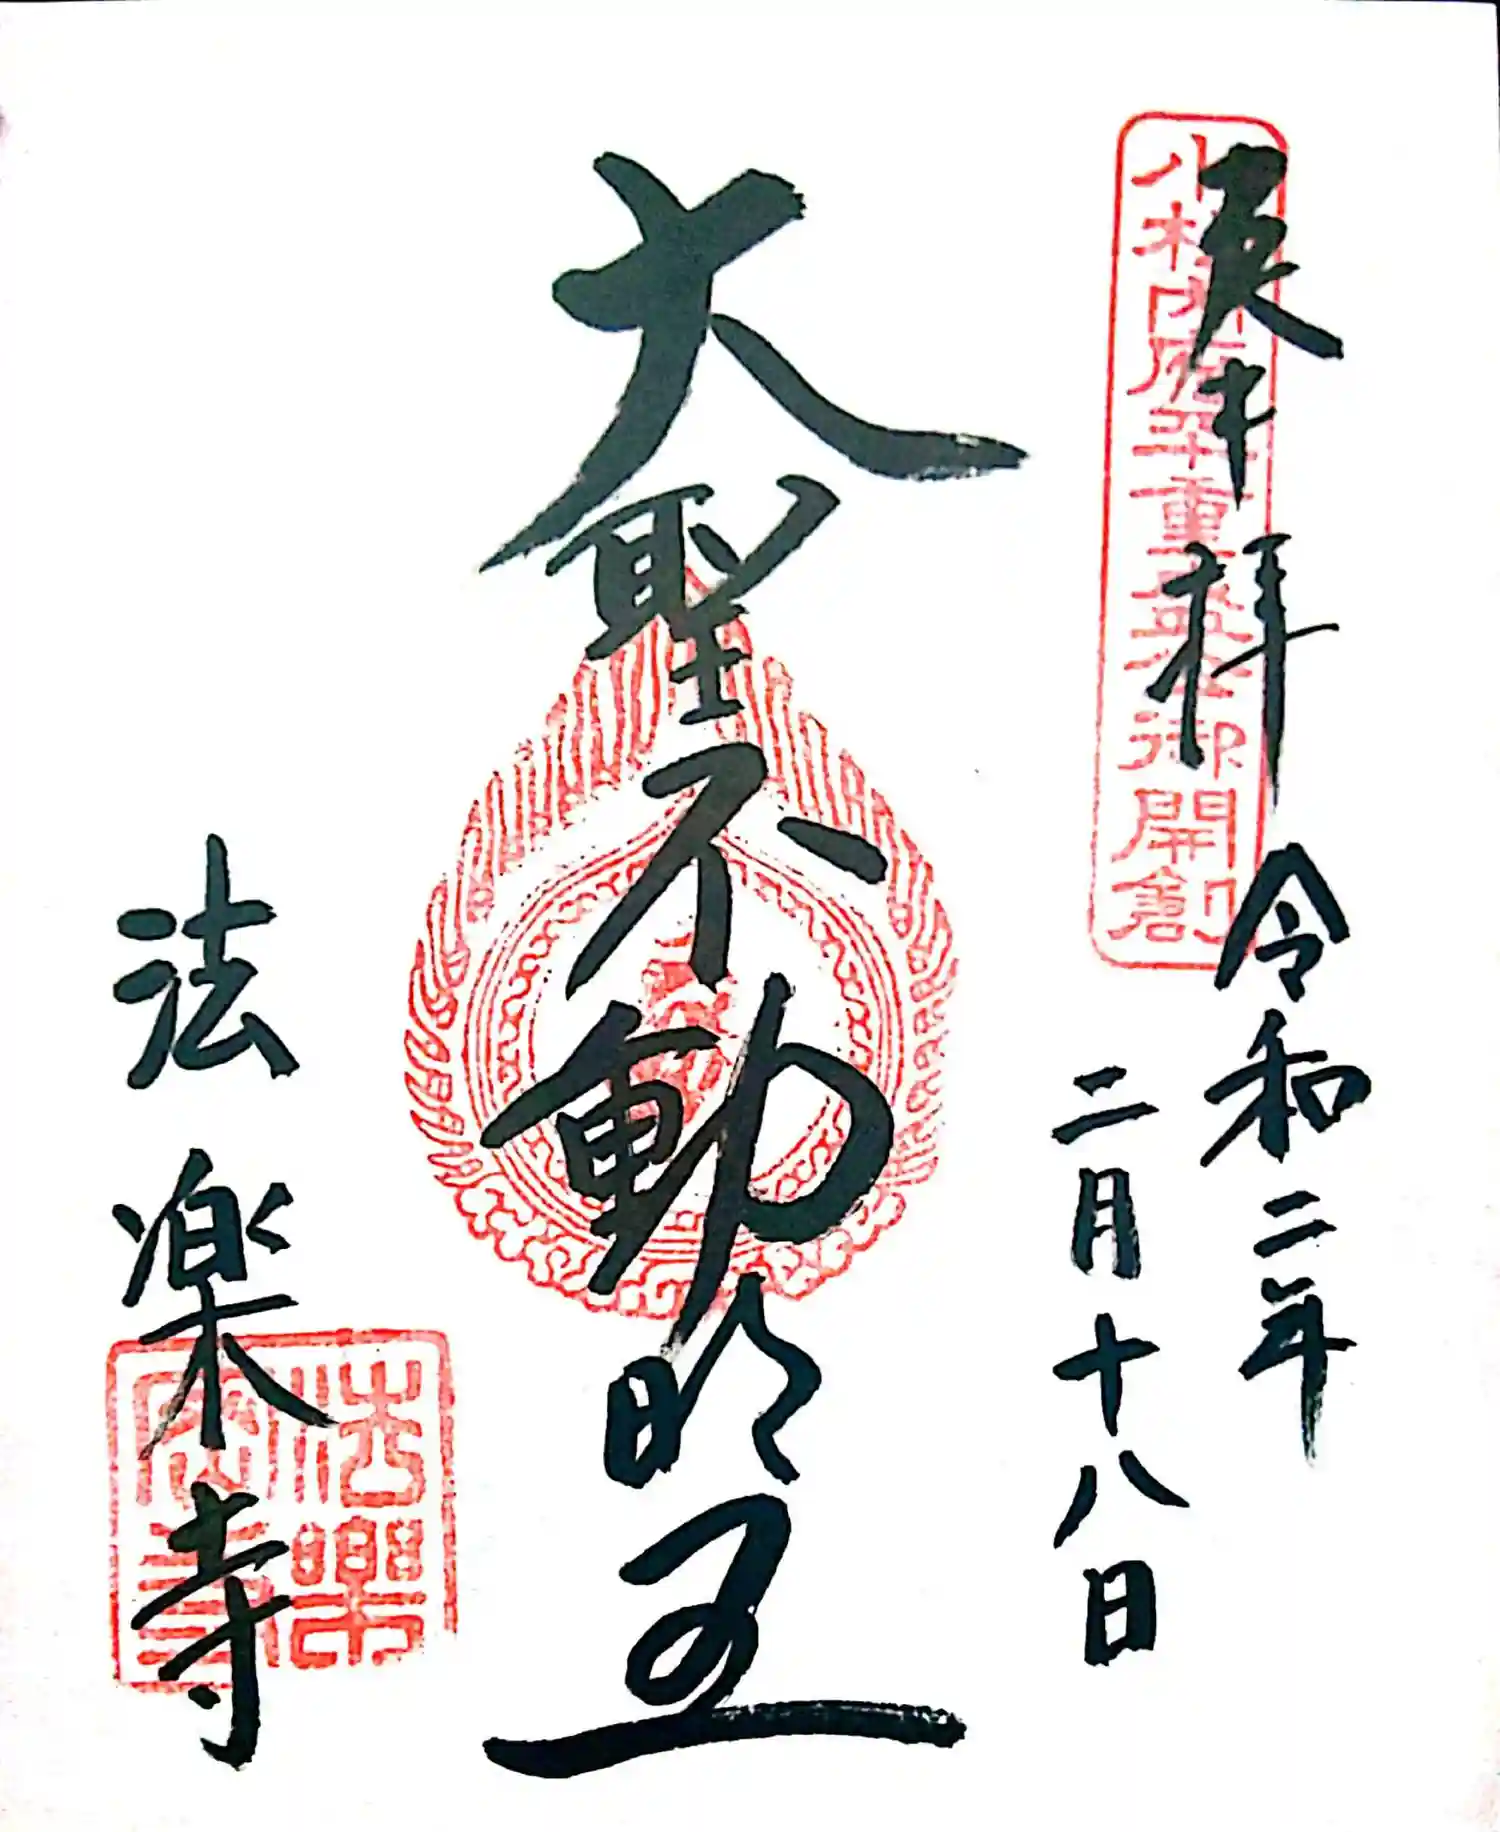 奉拝
令和二年
二月十八日
小松内府平重盛公御開創
大聖不動明王
法楽寺
法樂
密寺